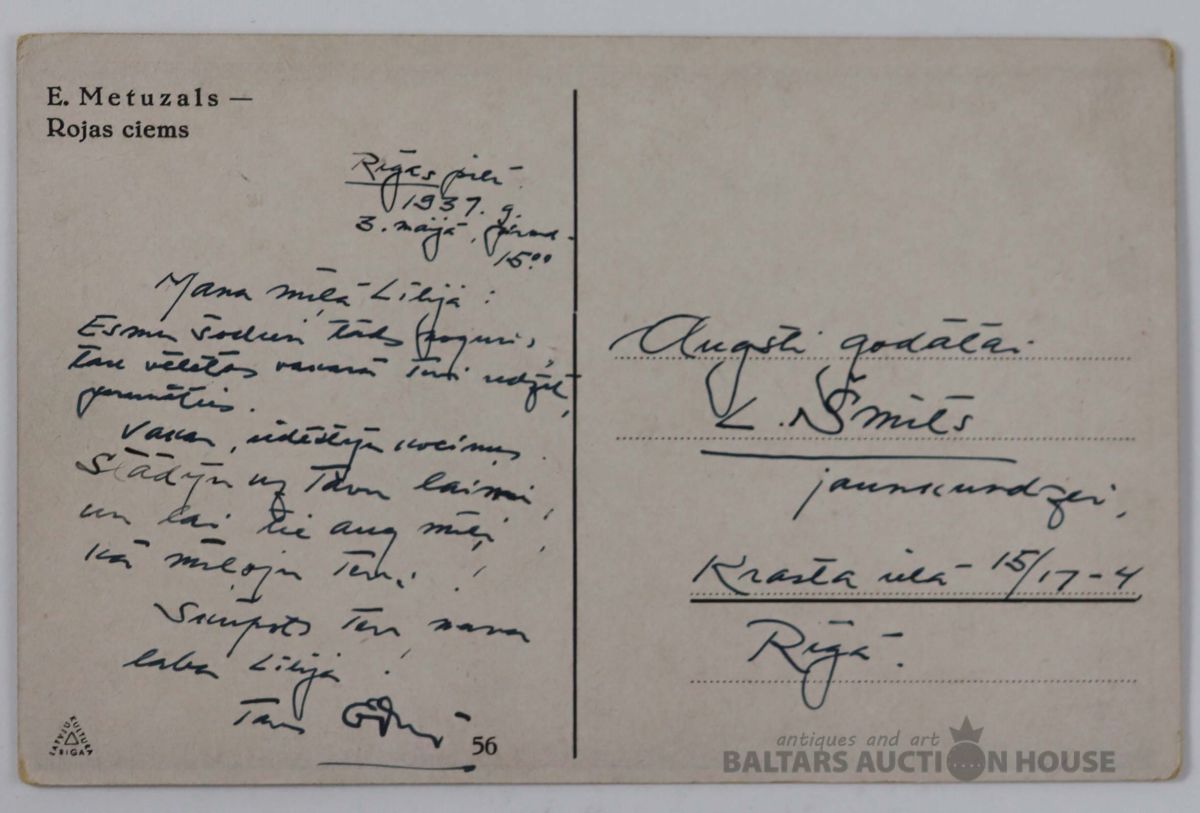 E. Metuzals —
Rojas ciems
Rīgas pilī
1937. g.
3. maijā,
15⁰⁰
Mana mīļā Lilijā!
Esmu šodien tāds noguris,
tau vēlētos vakarā Tevi redzēt,
Vakar, iedēstīju kociņus.
Stādīju uz Tavu laimi!
un lai tie aug mīļi,
kā mīloju Tevi!
Skūpsts Tev mana
laba Lilija!
Tavs
56
LATVJU KULTURA RIGA
Augsti godātai
L. Šmits
jaunkundzei,
Krasta ielā 15/17-4
Rīgā.
antiques and art
BALTARS AUCTION HOUSE